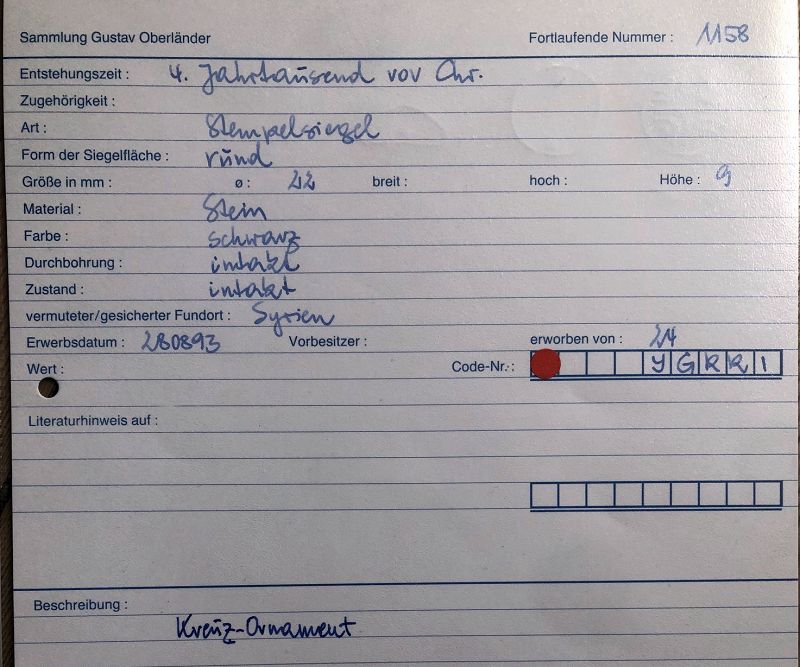 Sammlung Gustav Oberländer Fortlaufende Nummer : 1158
Entstehungszeit : 4. Jahrtausend vor Chr.
Zugehörigkeit :
Art : Stempelsiegel
Form der Siegelfläche : rund
Größe in mm : ø : 22 breit : hoch : Höhe : 9
Material : Stein
Farbe : schwarz
Durchbohrung : intakt
Zustand : intakt
vermuteter/gesicherter Fundort : Syrien
Erwerbsdatum : 280893 Vorbesitzer : erworben von : 24
Wert : Code-Nr.: YGRRI
Literaturhinweis auf :
Beschreibung :
Kreuz-Ornament